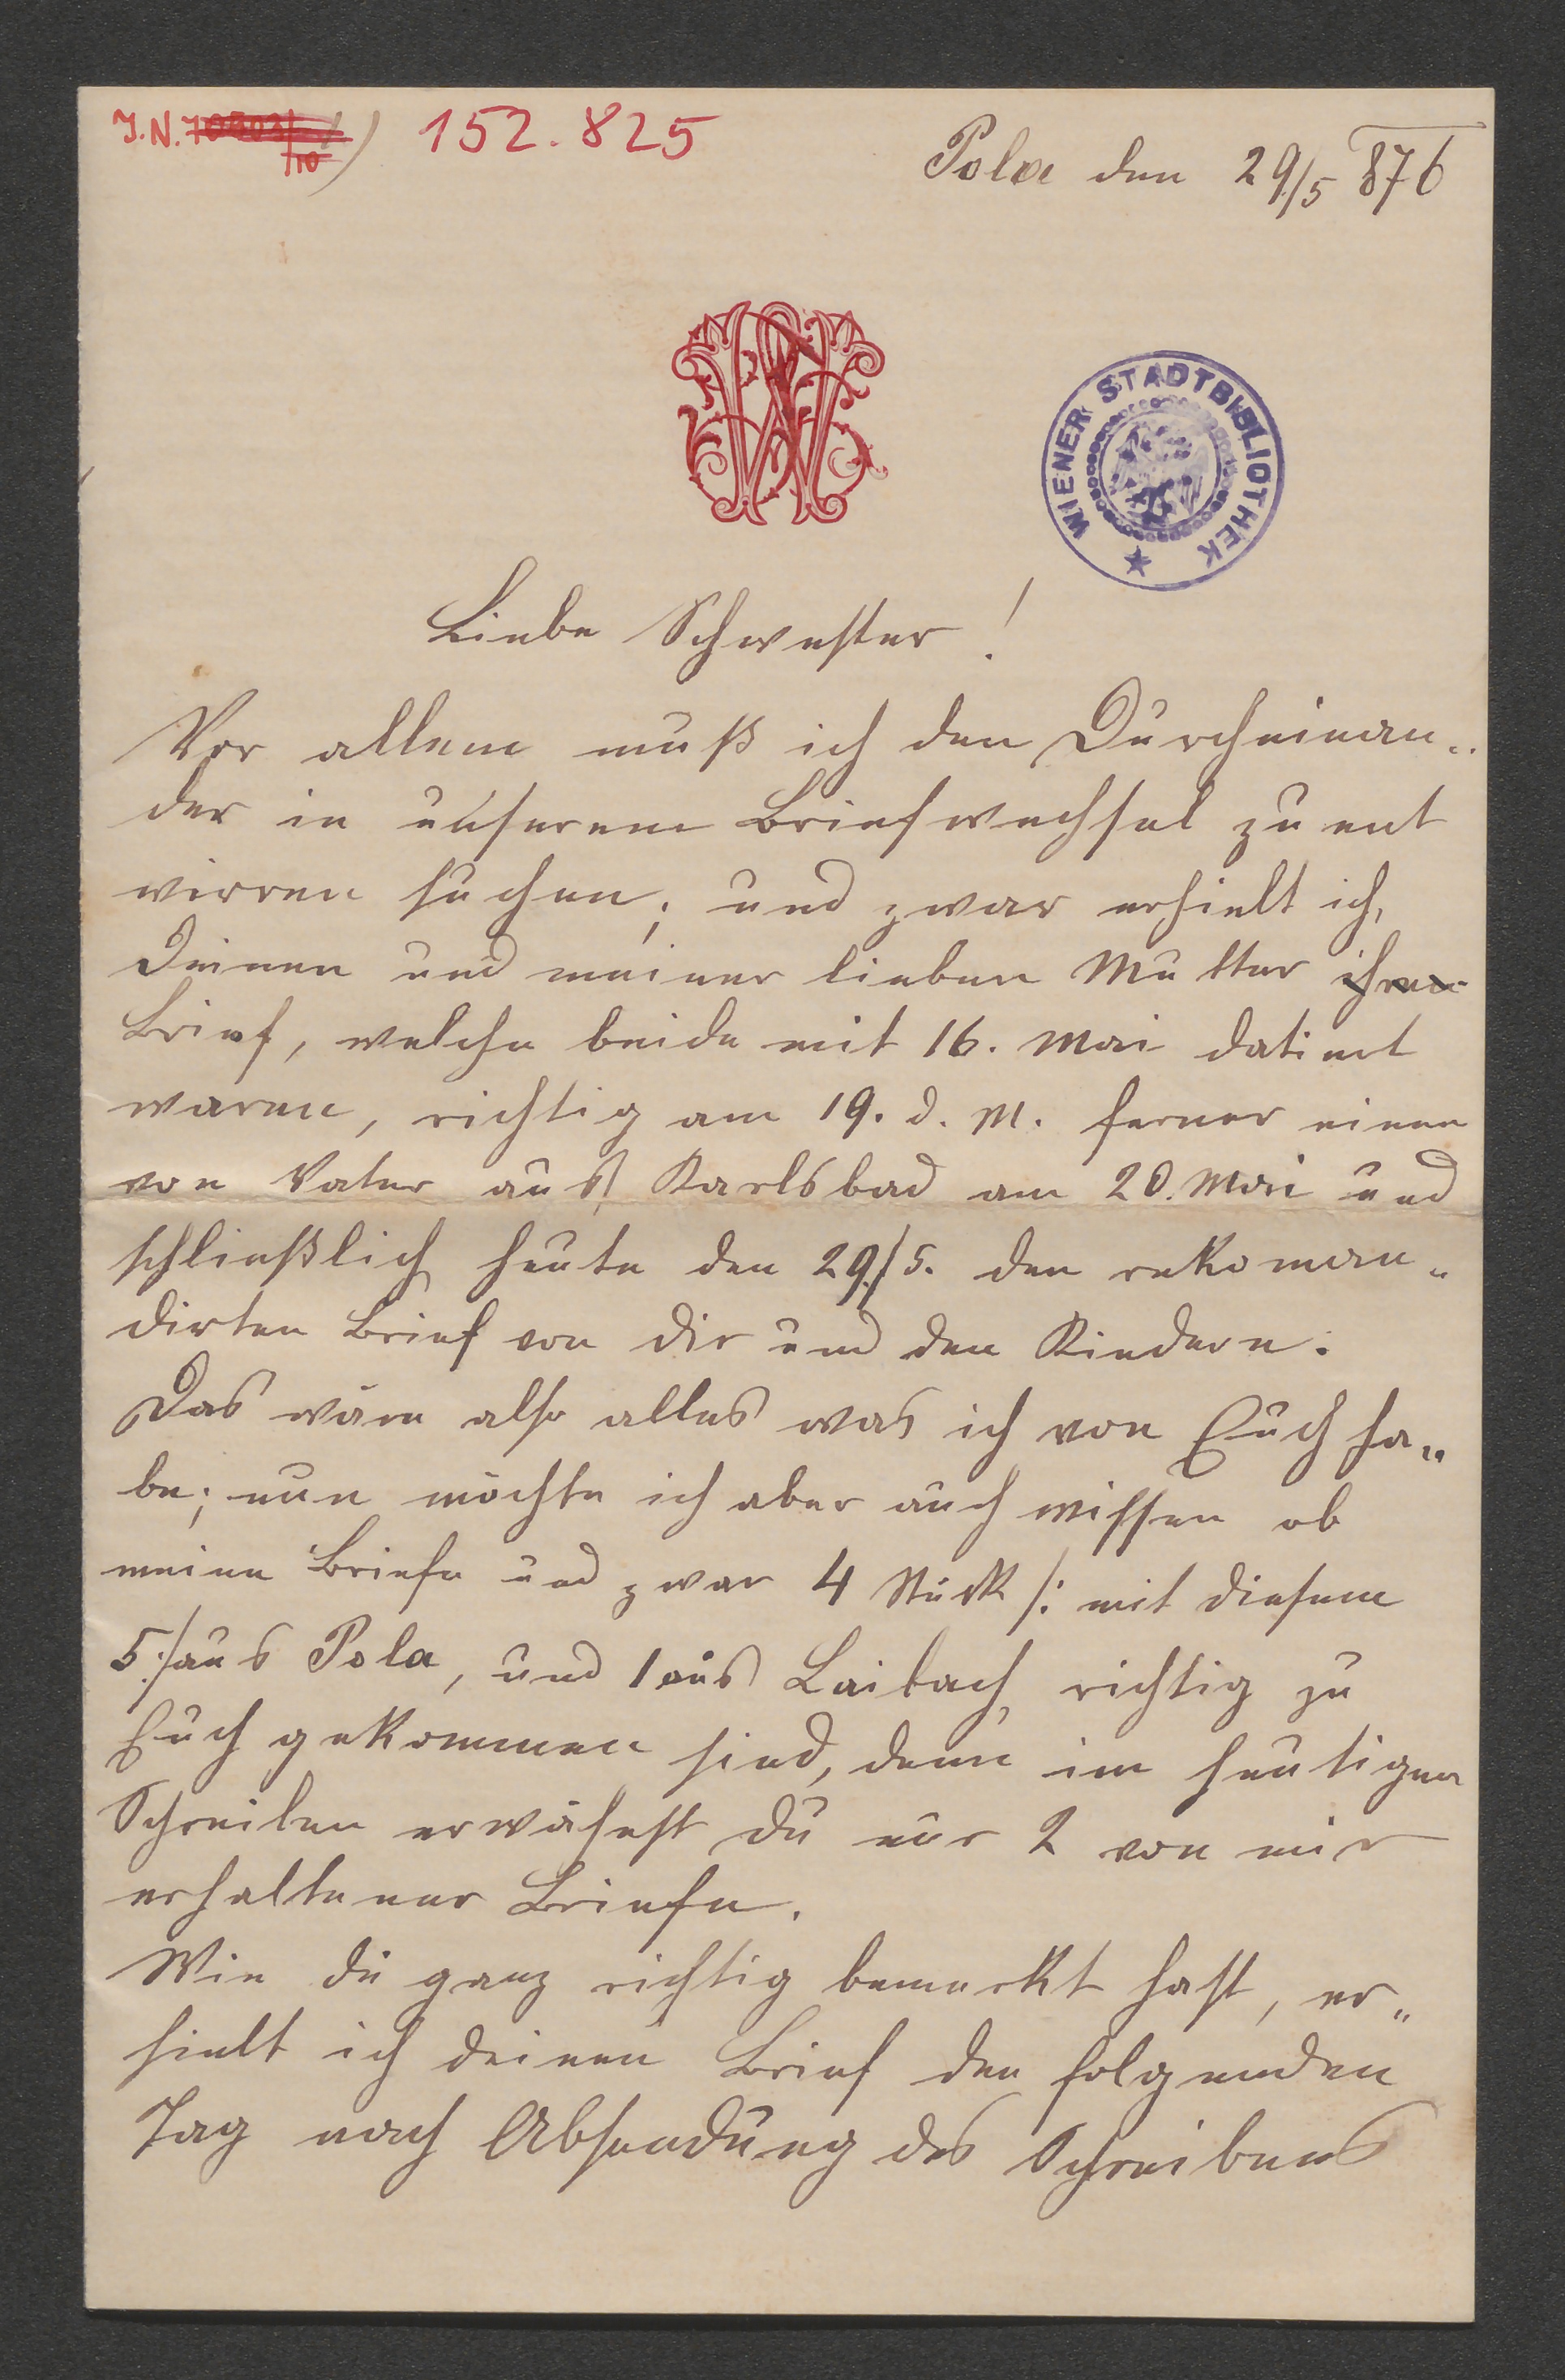 J.N. 152.825
Pola den 29/5 876
WIENER STADTBIBLIOTHEK
Liebe Schwester!
Vor allem muß ich den Durcheinan„
der in unserem Briefwechsel zu ent
wirren suchen; und zwar erhielt ich,
Deinen und meiner lieben Mutter ihren
Brief, welche beide mit 16. Mai datiert
waren, richtig am 19. d. M. ferner einen
von Vater aus Karlsbad am 20. Mai und
schließlich heute den 29/5. den rekoman„
dirten Brief von dir und den Kindern.
Das wäre also alles was ich von Euch ha„
be; nun möchte ich aber auch wissen ob
meine Briefe und zwar 4 Stück /: mit diesem
5 :/ aus Pola, und 1 aus Laibach, richtig zu
Euch gekommen sind, denn im heutigen
Schreiben erwähnst du nur 2 von mir
erhaltener Briefe.
Wie du ganz richtig bemerkt hast, er„
hielt ich deinen Brief den folgenden
Tag nach Absendung des Schreibens